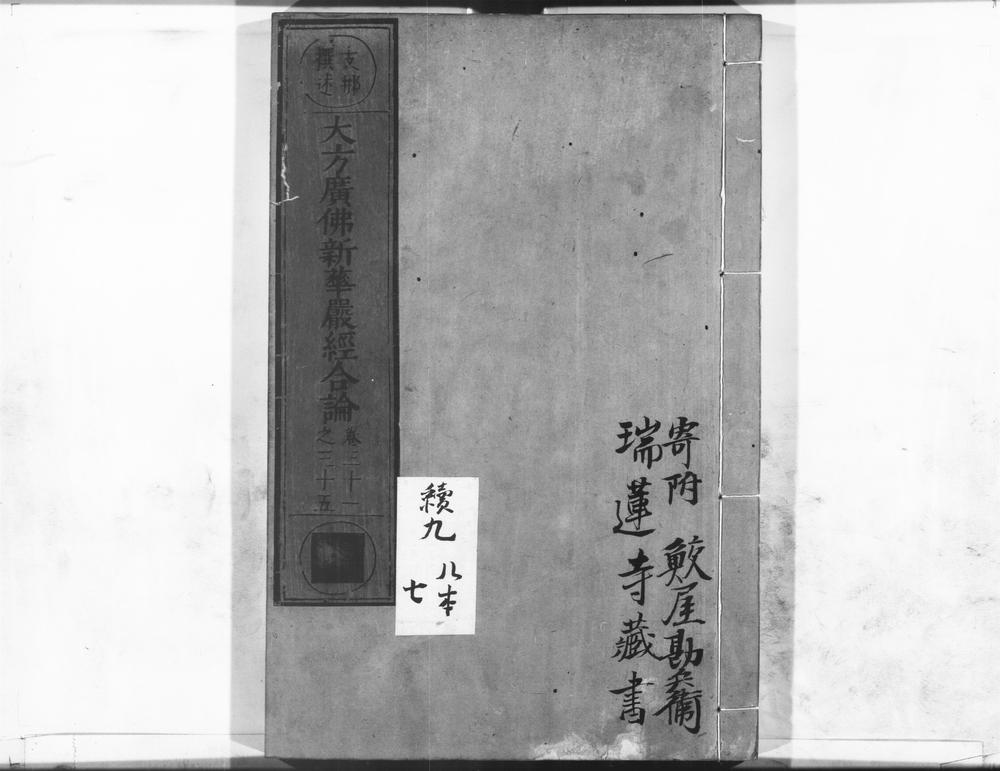 寄附 鮫屋勘兵衛
瑞蓮寺藏書
支那
撰述
大方廣佛新華嚴經合論
卷三十一
之三十五
續九
八本
七